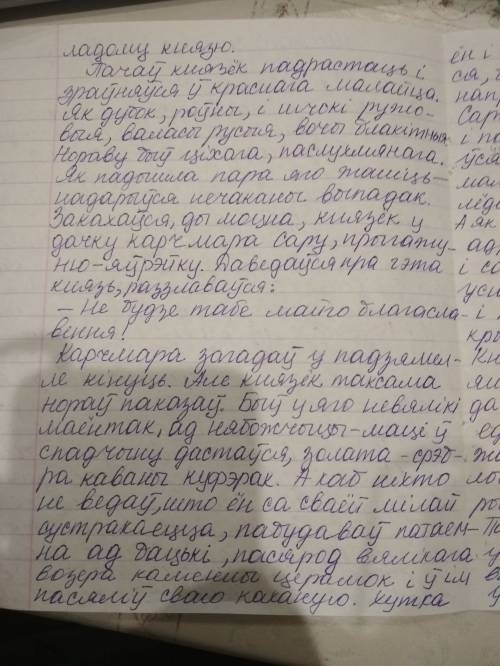 ладому князю.
Пачаў князёк падрастаць і
зраўняўся ў краснага малайца.
Як дубок, роўны, і шчокі ружо-
выя, валасы русыя, вочы блакітныя.
Нораву быў ціхага, паслухмянага.
Як падышла пара яго жаніць-
надарыўся нечаканы выпадак.
Закахаўся, ды моцна, князёк у
дачку карчмара Сару, прыгажу-
ню-яўрэйку. Даведаўся пра гэта
князь, раззлаваўся:
- Не будзе табе майго благасла-
вення!
Карчмара загадаў у падзямел-
ле кінуць. Але князёк таксама
нораў паказаў. Быў у яго невялікі
маёнтак, ад нябожчыцы-маці ў
спадчыну дастаўся, золата-срэб-
ра каваны куфэрак. А каб ніхто
не ведаў, што ён са сваёй мілай
сустракаецца, пабудаваў патаем-
на ад бацькі, пасярод вялікага
возера каменны церамок і ў ім
пасяліў сваю каханую. Хутка
ён і
ся,
нап
Сар
і па
ўся
мал
лёд
А як
адр
і са
усп
- і
кры